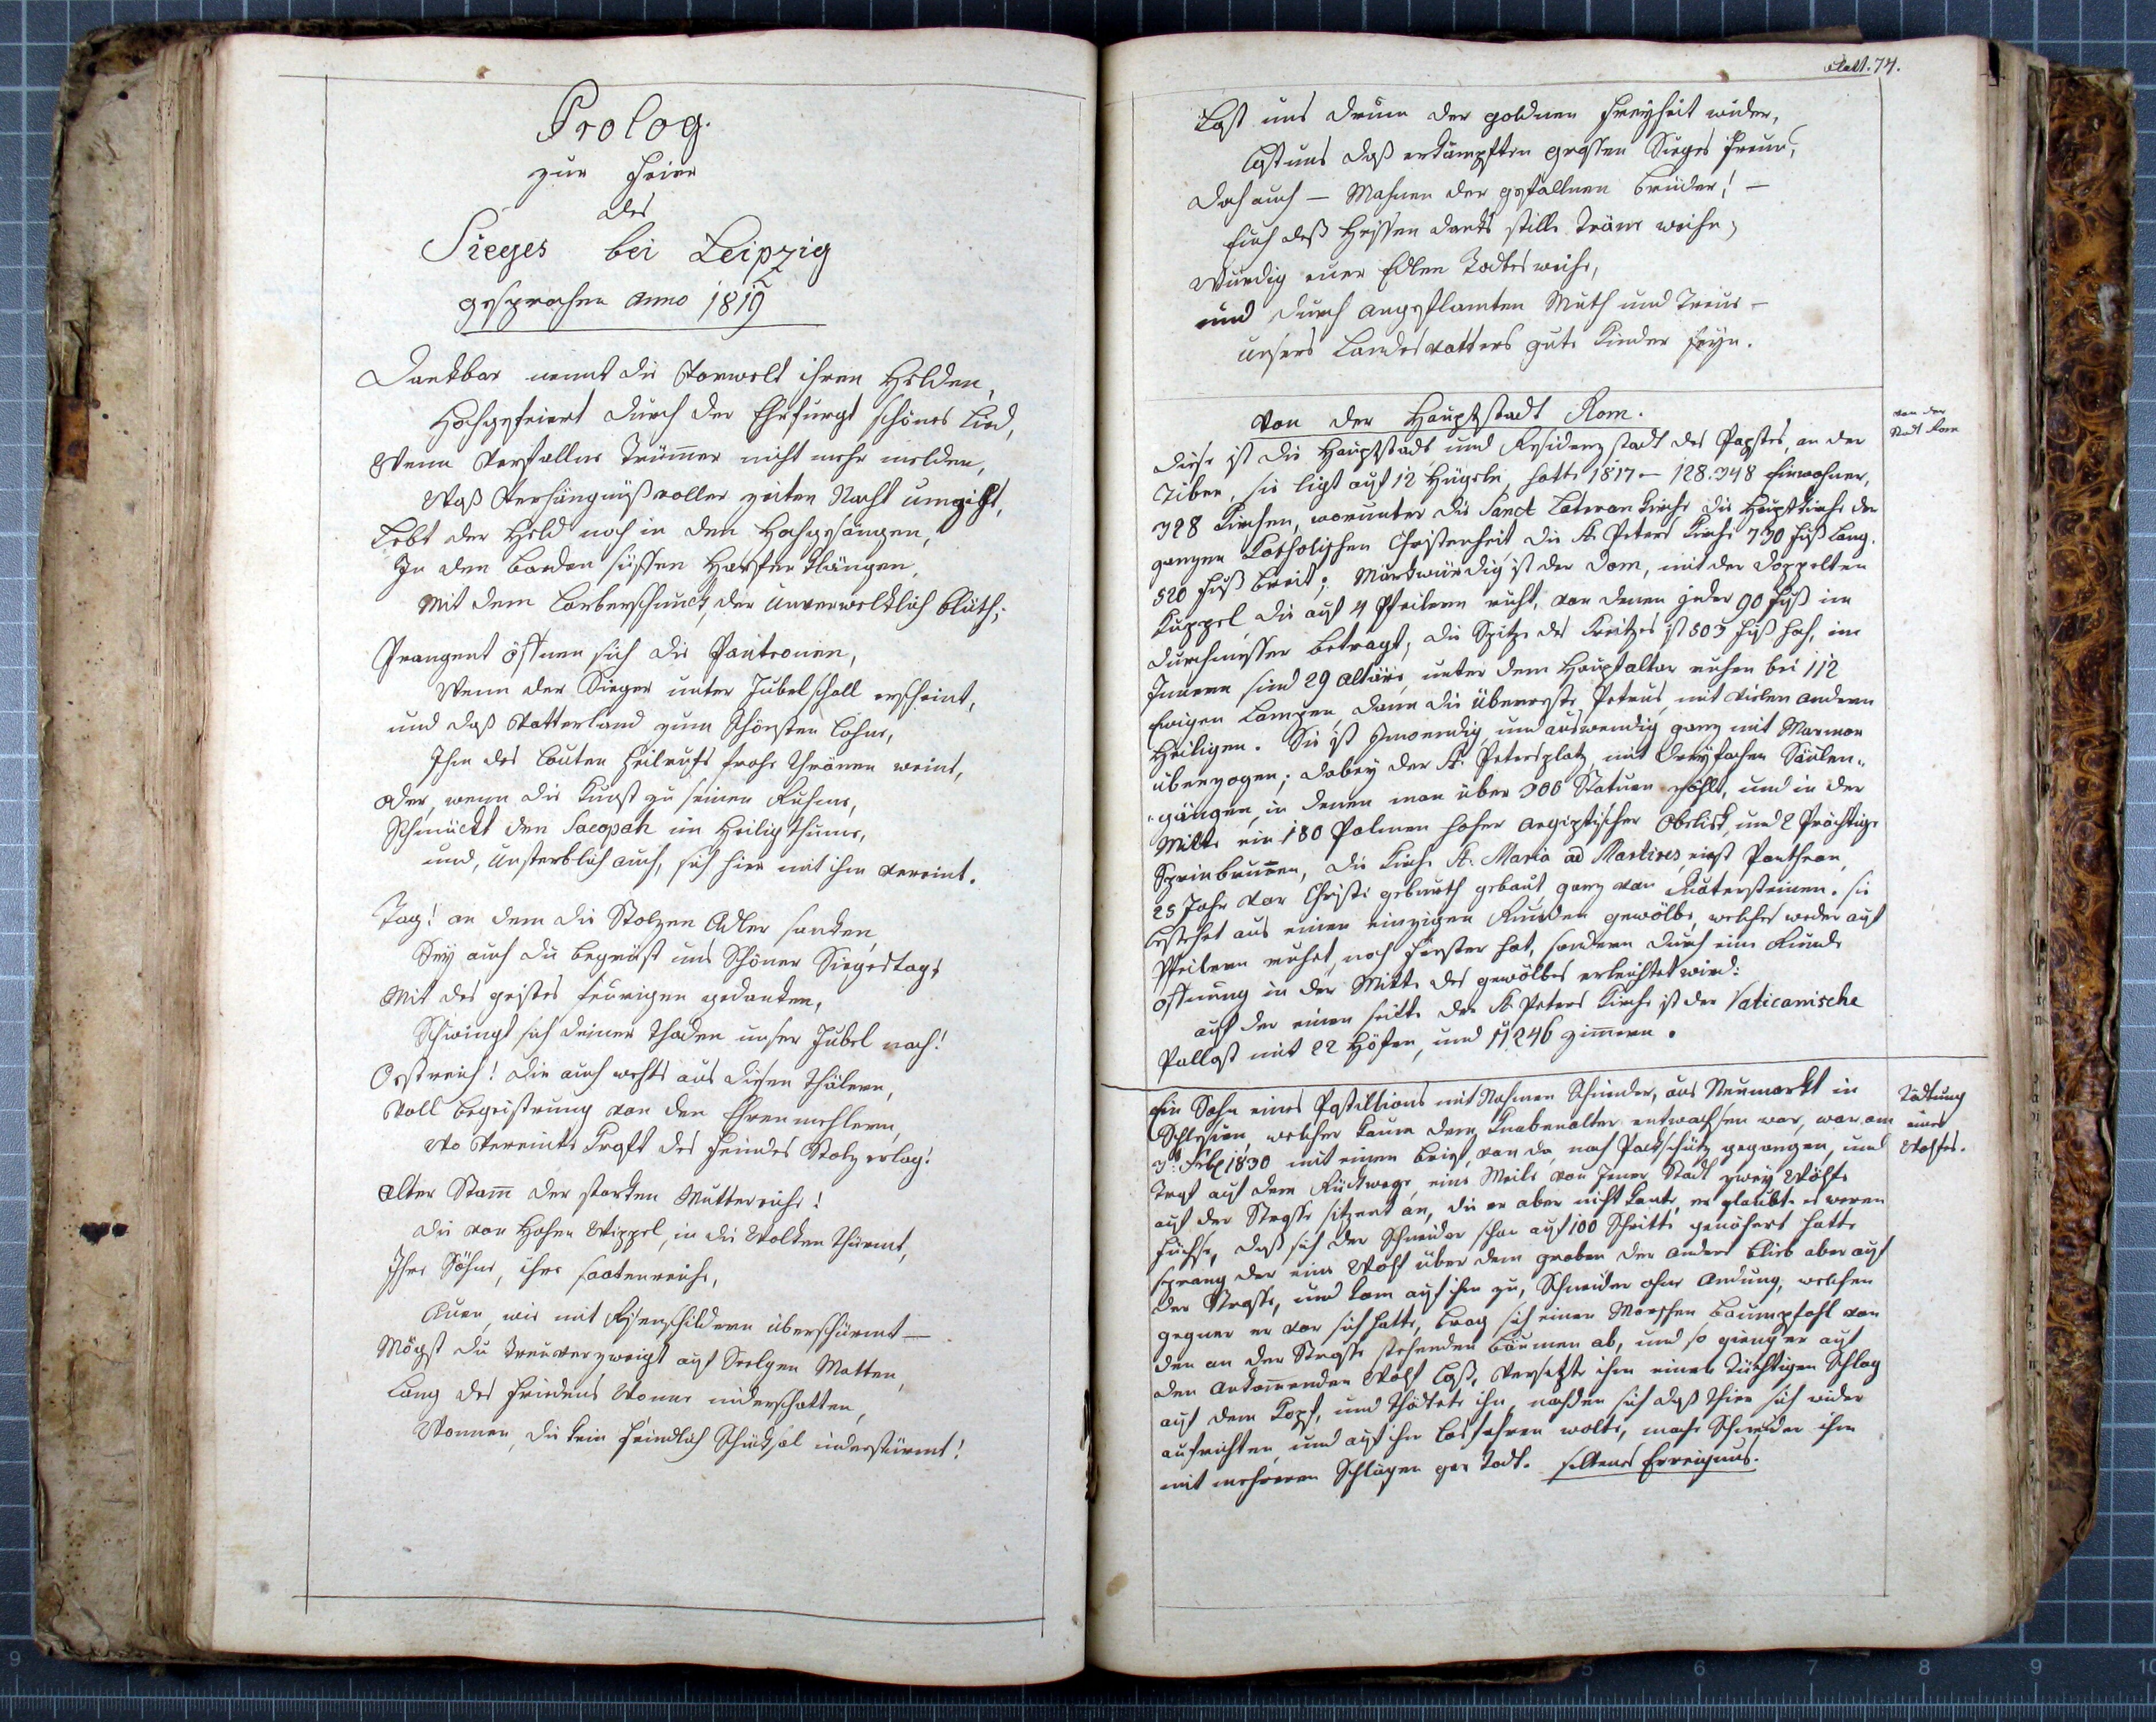 Prolog.
zur Feier
des
Sieges bei Leipzig
gesprochen anno 1819
Dankbar nennt die Vorwelt ihren Helden,
Hochgefeiert durch der Ehrfurgt schönes Lied,
Wenn Verfallne Trümmer nicht mehr melden,
Waß Verhängnüßvoller zeiten Nacht umzieht,
Lebt der Held noch in den Hochgesängen,
In den Barden süssen Harfenklängen,
Mit dem Lorberschmuck, der Unverwelklich blüth;
Prangent öffnen sich die
Wenn der Sieger unter Jubelschall erscheint,
und daß Vatterland zum schönsten Lohne,
Ihm des lauten Heilrufs frohe Thränen weint,
oder, wenn die Kunst zu seinen Ruhme,
Schmückt den Sacopah im Heiligthume,
und, Unsterblich auch, sich hier mit ihm vereint.
Tag! an dem die Stolzen Adler sanken,
Sey auch du begrüst uns Schöner Siegestag;
Mit des geistes feurigen gedanken,
Schwingt sich deiner Thaden unser Jubel nach!
Oestreich! die auch wehts aus diesen Thälern,
Voll begeistrung von den Ehrenmehlern,
Wo Vereinte Kraft des Feindes Stolz erlag!
Alter Stam̄ der starken Muttereiche!
Die von Hohen Wippel, in die Wolken Thürmt,
Ihre Söhne, ihre saatenreiche,
Auen, wie mit Risenschildern überschürmt —
Mögst du Treuverzweigt auf Seelgen Matten,
Lang des Friedens Wonne niderschatten,
Wonnen, die kein feindlich Schüksal niderstürmt!
Blatt. 74.
Last uns drum der goldnen Freyheit wider,
last uns daß erkämpften grossen Sieges freun,
Doch auch — Mahnen der gefallnen Brüder! —
Euch deß Heissen danks stille Träne weihn,
Würdig eurer Edlen Todtesweihe,
und durch angestamten Muth und Treue —
unsers Landesvatters gute Kinder seyn.
Von der Hauptstadt Rom.
von der
Stadt Rom
Diese ist die Hauptstadt und Residenzstadt des Papstes, an der
Tiber, sie ligt auf 12 Hügeln, hatte 1817 – 128.348 Einwohner,
328 Kirchen, worunter die Sanct Lateran kirche die Hauptkirche der
ganzen Katholischen Christenheit, die St. Peters Kirche 730 Fuß lang.
520 Fuß breit; Märkwürdig ist der Dom, mit der doppelten
Kuppel, die auf 4 Pfeilern ruht, von denen jeder 90 Fuß im
durchmesser betragt; die Spitze des Kreitzes ist 503 Fuß hoch, im
Innern sind 29 Altäre, unter dem Hauptaltar ruhen bei 112
Ewigen Lampen, dann die überreste Petrus, mit vielen andern
Heiligen. Sie ist Innwendig, und auswendig ganz mit Marmor
überzogen; dabey der St. Petersplatz, mit dreyfachen Säulen„
„gängen, in denen man über 300 Statuen zählt, und in der
Mitte ein 180 Palmen hoher aegiptischer Obelisk, und 2 Prächtige
Sprinbrunen, die Kirche St. Maria ad Martires, einst Pantheon,
25 Jahr vor Christi geburth gebaut, ganz von Quatersteinen. sie
bestehet aus einen einzigen Runden gewölbe, welches weder auf
Pfeilern ruhet, noch fenster hat, sondern durch eine Runde
öffnung in der Mitte des gewölbes erleichtet wird:
auf der einen seitte der St. Peters Kirche ist der Vaticanische
Pallast mit 22 Höfen, und 11,246 zim̄ern.
Tödtung
eines
Wolfes.
Ein Sohn eines Postillions mit Nahmen Schneider, aus Neumarkt in
Schlesien, welcher kaum dem Knabenalter entwachsen war, war am
3t Feb 1830 mit einen brief, von da, nach gegangen, und
Traf auf dem Rückwege, eine Meile von Jener Stadt zwey Wölfe
auf der Strasse sitzent an, die er aber nicht kante, er glaubte es weren
füchse, daß sich der Schneider schon auf 100 Schritte genähert hatte
sprang der eine Wolf über dem graben der andere blieb aber auf
der Strasse, und kam auf ihn zu, Schneider ohne Andung, welchen
gegner er vor sich hatte, brag sich einen Morschen Baumpfahl von
den an der Strasse stehenden bäumen ab, und so gieng er auf
den ankom̄enden Wolf loß, Versetzte ihm einen Tüchtigen Schlag
auf dem Kopf, und Thödete ihn, nachdem sich daß Thier sich wider
aufrichten, und auf ihn losfahren wolte, mache Schneider ihm
mit mehreren Schlägen gar Todt. seltenes Erreignus.